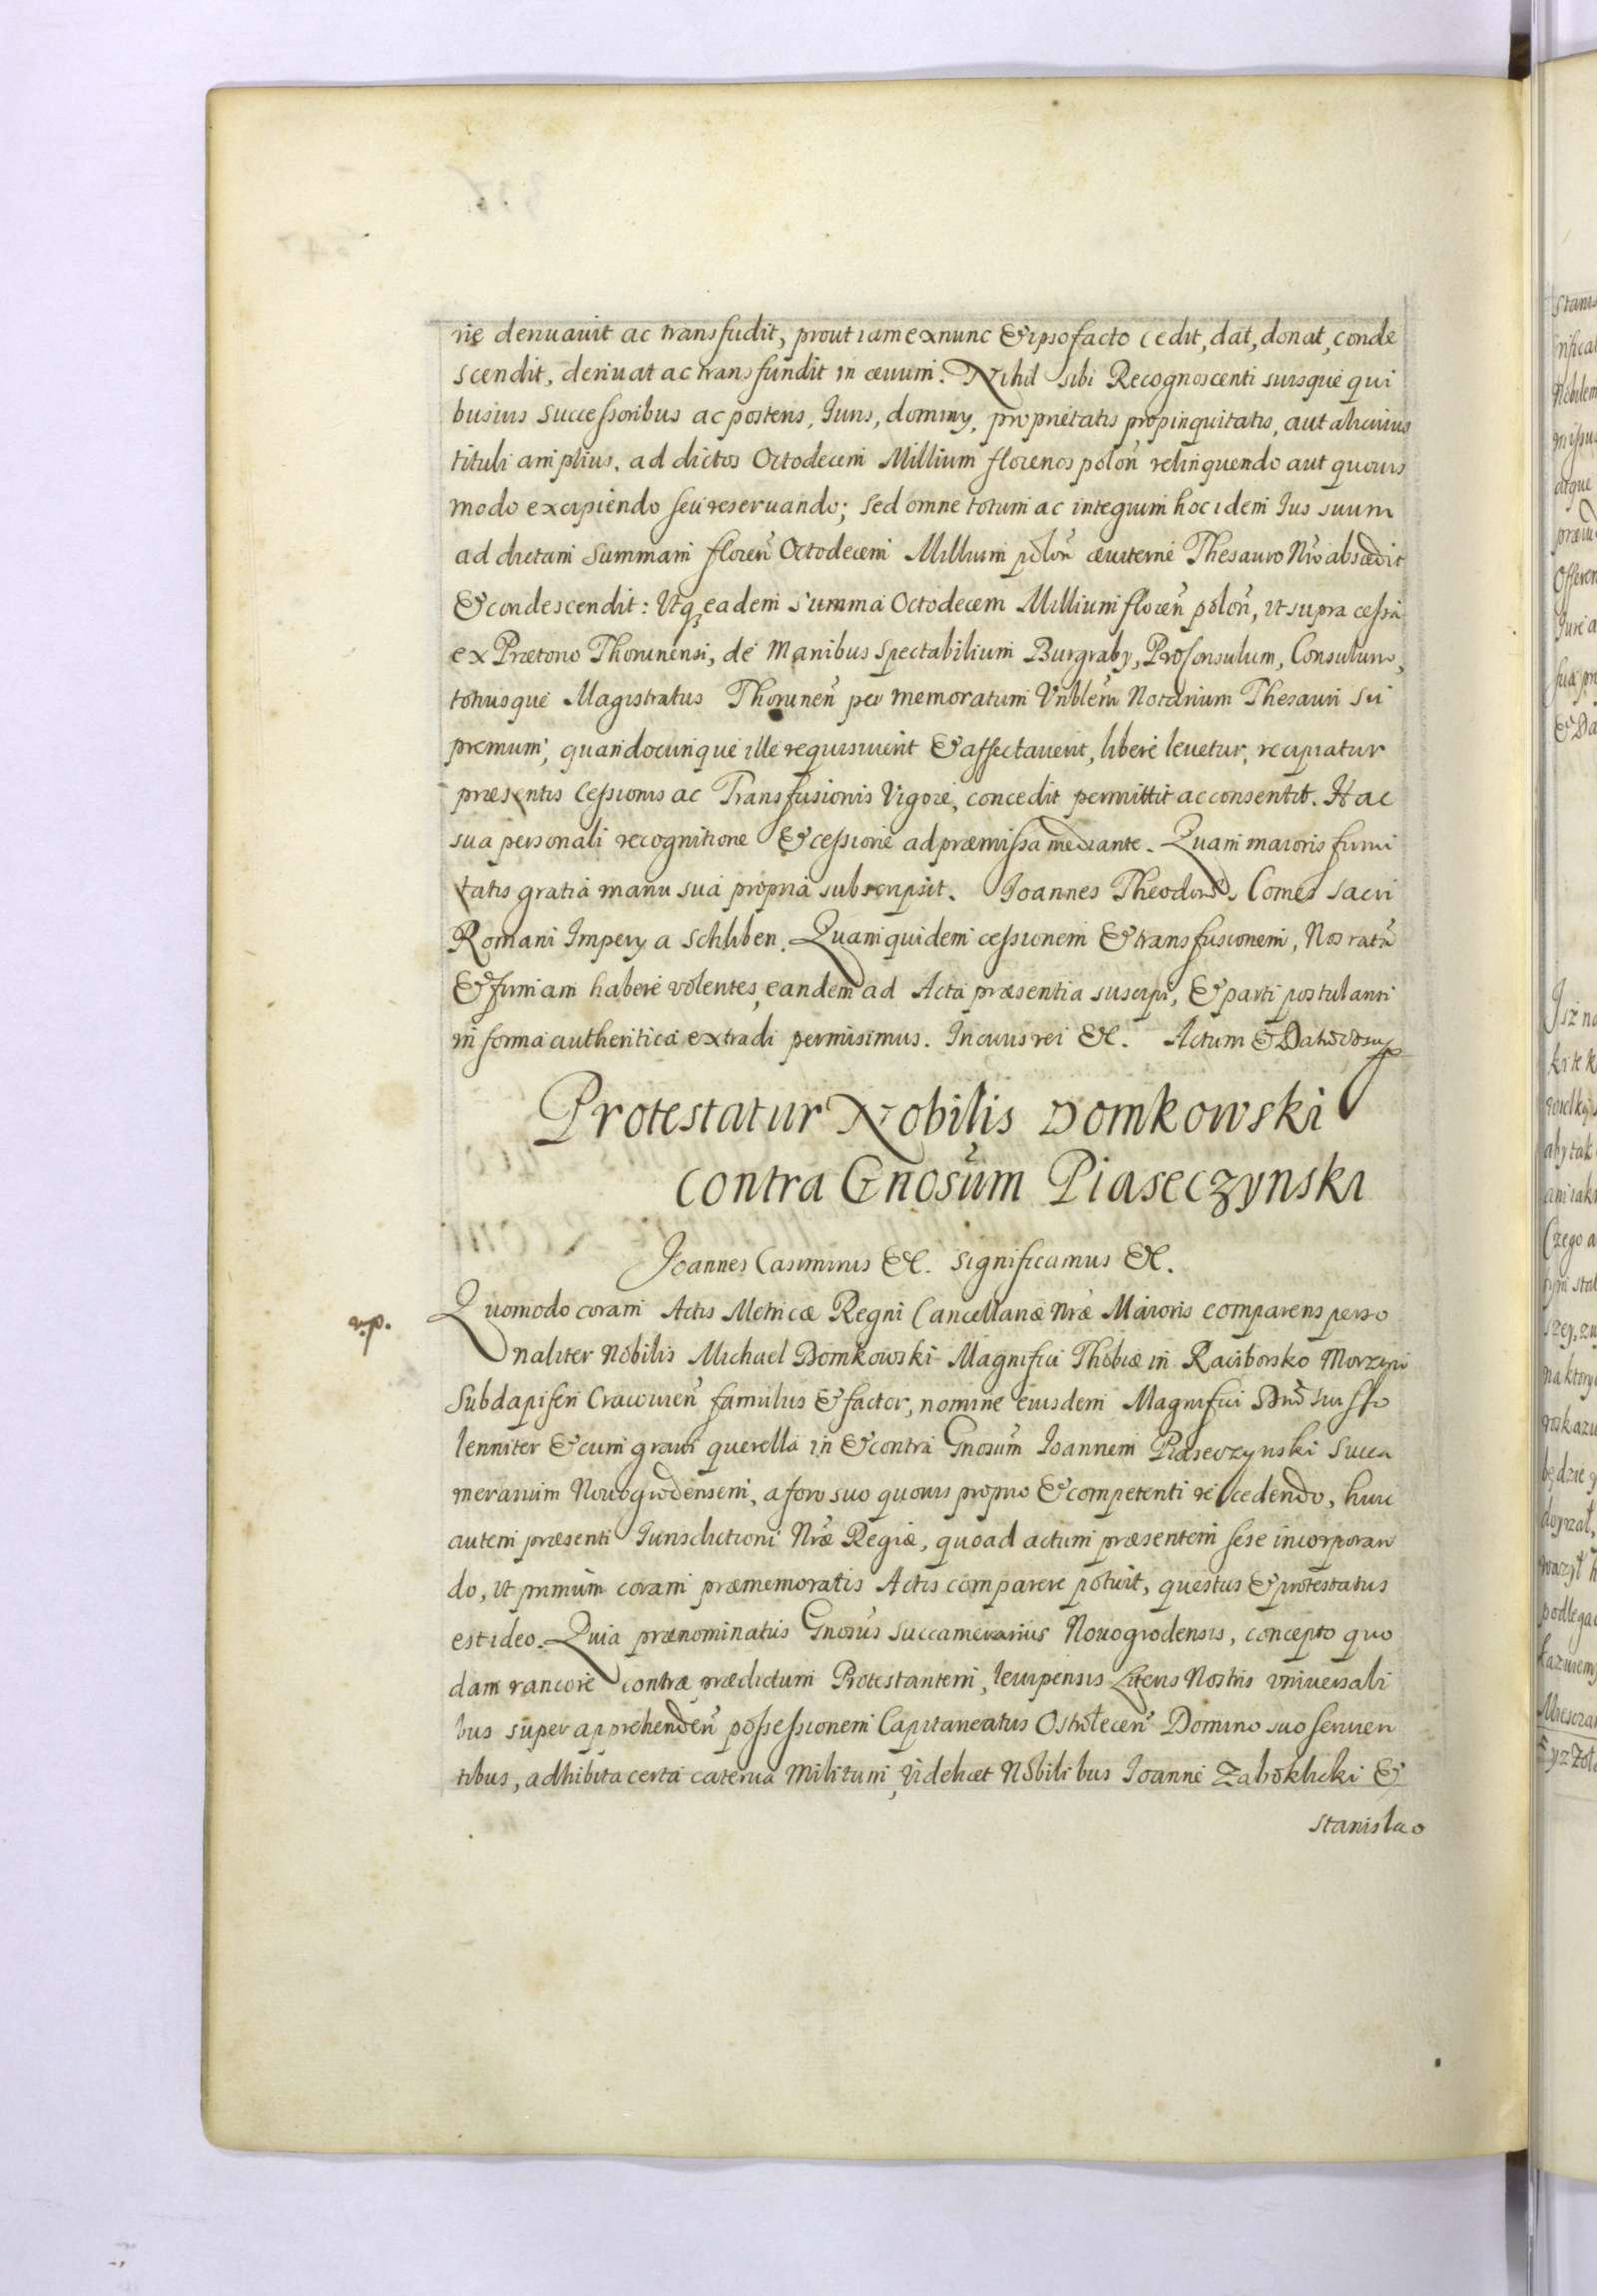 rie deriuauit ac transfudit, prout iam exnunc & ipso facto cedit, dat, donat, conde
scendit, deriuat ac transfundit in æuum. Nihil sibi Recognoscenti suisque qui
busuis successoribus ac posteris, Iuris, dominij, proprietatis propinquitatis, aut alicuius
tituli amplius, ad dictos Octodecem Millium florenos polon̄ relinquendo aut quouis
modo excipiendo seu reseruando; sed omne totum ac integrum hoc idem Ius suum
ad dictam summam floren̄ Octodecem Millium polon̄ æuiterne Thesauro Nr̄o abscedit
& condescendit: Utq₃ eadem summa Octodecem Millium floren̄ polon̄, ut supra cessa
ex Prætorio Thorunensi, de Manibus Spectabilium Burgrabij, Proconsulum, Consulum,
totiusque Magistratus Thorunen̄ per memoratum Vrīblem̄ Notarium Thesauri su
premum, quandocunque ille requisiuerit & affectauerit, libere leuetur, recipiatur
præsentis Cessionis ac Transfusionis Vigore, concedit permittit ac consentit. Hac
sua personali recognitione & cessione ad præmissa mediante. Quam maioris firmi
tatis gratia manu sua propria subscripsit. Joannes Theodorus Comes Sacri
Romani Imperij a Schliben. Quam quidem cessionem & transfusionem, Nos ratā
& firmam habere volentes, eandem ad Acta præsentia suscipi, & parti postulanti
in forma authentica extradi permisimus. In cuius rei &c. Actum & Datū vt sup
Protestatur Nobilis Domkowski
contra Gnosūm Piaseczynski
Joannes Casimirus &c. Significamus &c.
Quomodo coram Actis Metricæ Regni Cancellariæ Nr̄æ Maioris comparens perso
naliter Nobilis Michael Domkowski Magnifici Thobiæ in Raciborsko Morzyn
Subdapiferi Cracouien̄ famulus & factor, nomine eiusdem Magnifici Dn̄i sui so
lenniter & cum graui querella in & contra Gnosūm Ioannem Piaseczynski Succa
merarium Nouogrodensem, a foro suo quouis proprio & competenti recedendo, huic
autem præsenti Iurisdictioni Nr̄æ Regiæ, quoad actum præsentem sese incorporan
do, ut primum coram præmemoratis Actis comparere potuit, questus & protestatus
est ideo. Quia prænominatus Gnosūs Succamerarius Nouogrodensis, concepto quo
dam rancore contra prædictum Protestantem, leuipensis Literis Nostris vniuersali
bus super apprehenden̄ possessionem Capitaneatus Ostrołecen̄ Domino suo seruien
tibus, adhibita certa caterua Militum, videlicet Nobilibus Joanne Zaboklicki &
Stanislao
v.p.